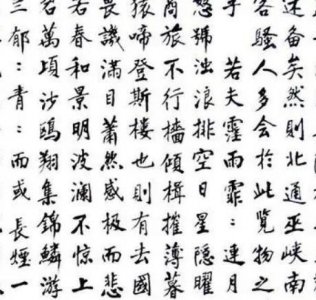 述备矣然則北通巫峡南
客騷人多会於此覧物之
乎 若夫霪雨霏:連月
怒號浊浪排空日星隱曜
商旅不行檣傾楫摧薄暮
猿啼登斯樓也則有去國
畏譏滿目蕭然感极而悲
若春和景明波澜不惊上
萬頃沙鷗翔集錦鱗游
郁:青:而或長煙一